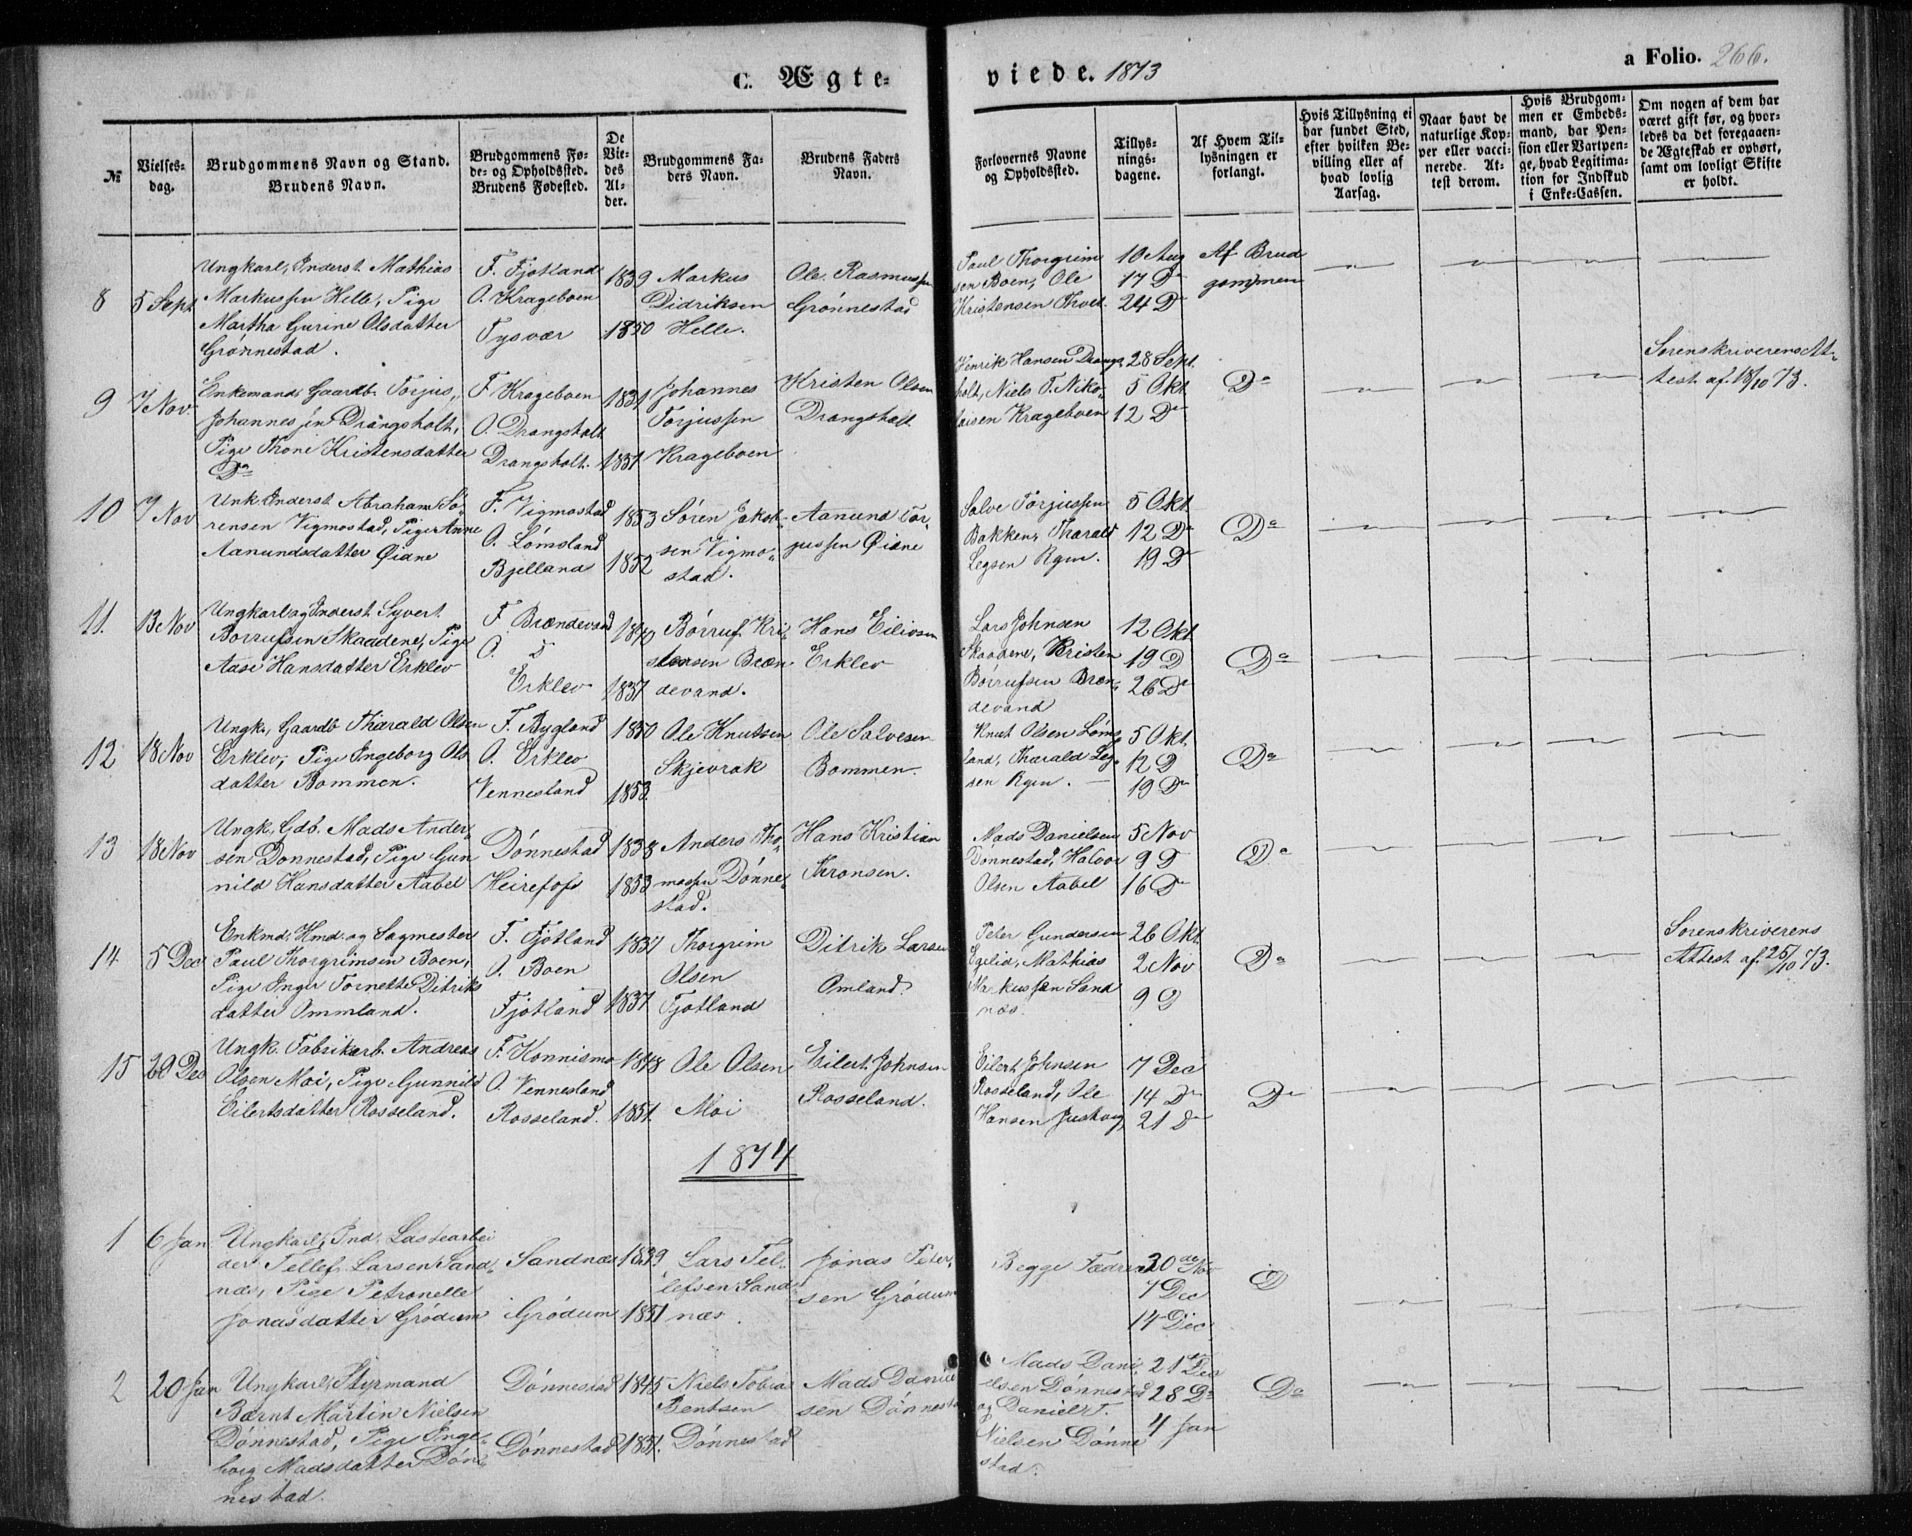 C. Ægte-
viede. 1873
a Folio. 266.
№
Vielses-
dag.
Brudgommens Navn og Stand.
Brudens Navn.
Brudgommens Fø-
de- og Opholdssted.
Brudens Fødested.
De
Vie-
des
Al-
der.
Brudgommens Fa-
ders Navn.
Brudens Faders
Navn.
Forlovernes Navne
og Opholdssted.
Tillys-
nings-
dagene.
Af Hvem Til-
lysningen er
forlangt.
Hvis Tillysning ei
har fundet Sted,
efter hvilken Be-
villing eller af
hvad lovlig
Aarsag.
Naar havt de
naturlige Kop-
per eller vacci-
nerede. At-
test derom.
Hvis Brudgom-
men er Embeds-
mand, har Pen-
sion eller Vartpen-
ge, hvad Legitima-
tion for Indskud
i Enke-Cassen.
Om nogen af dem har
været gift før, og hvor-
ledes da det foregaaen-
de Ægteskab er ophørt,
samt om lovligt Skifte
er holdt.
8
5 Sept
Ungkarl, Inderst Mathias
Markussen Helle, Pige
Martha Gurine Olsdatter
Grønnestad.
F. Fjotland
O. Krageboen
Tysvær
1839
1850
Markus
Didriksen
Helle.
Ole Rasmussen
Grønnestad
Paul Thorgrim
sen Boen, Ole
Kristensen Thveit
10 Aug
17 Do
24 Do
Af Brud
gommen
9
7 Nov
Enkemand, Gaardb. Torjus
Johannesen Drangsholt,
Pige Thone Kristensdatter
Do
F. Krageboen
O. Drangsholt
Drangsholt.
1831
1851
Johannes
Torjussen
Krageboen
Kristen Olsen
Drangsholt
Henrik Hansen Drangs
holt, Niels T. Niko-
laisen Krageboen
28 Sept.
5 Okt
12 Do
Do
Sorenskriverens At-
test af 18/10 73.
10
7 Nov
Unk. Inderst Abraham Sø-
rensen Vigmostad, Pige Anne
Aanundsdatter Øiane
F. Vigmostad
O. Lømsland
Bjelland
1853
1852
Søren Jakob-
sen Vigmo-
stad.
Aanund Tor-
jussen Øiane
Salve Torjussen
Bakken, Tharald
Legsen Rgen.
5 Okt
12 Do
19 D
Do
11.
13 Nov
Ungkarl og Inderst Syvert
Borrufsen Skaadene, Pige
Aase Hansdatter Erklev
F. Brændevand
O. D
Erklev
1840
1837
Børruf Kri-
stensen Bræn
devand.
Hans Eilivsen
Erklev
Lars Johnsen
Skaadene, Kristen
Borrufsen Bræn
devand
12 Okt.
19 D
26 Do
Do
12
18 Nov
Ungk., Gaardb Tharald Olsen
Erklev, Pige Ingeborg Ols
datter Bommen.
F. Bygland
O. Erklev
Vennesland
1850
1853
Ole Knutsen
Skjevrak
Ole Salvesen
Bommen.
Knut Olsen Løms
land, Tharald Leg-
sen Rgen.
5 Okt.
12 D
19 Do
Do
13
18 Nov
Ungk., Gdb. Mads Ander-
sen Donnestad, Pige Gun
nild Hansdatter Aabel
Dønnestad
Heirefoss
1838
1853
Anders Tho-
massen Dønne-
stad.
Hans Kristian
Thronsen.
Mads Danielsen
Dønnestad, Halvor
Olsen Aabel
5 Nov
9 D
16 Do
Do
14
5 Dec
Enkmd. Hmd. og Sagmester
Paul Thorgrimsen Boen,
Pige Inger Tornette Ditriks
datter Ommland.
F. Fjotland
O. Boen
Fjotland
1837
Thorgrim
Olsen
Fjotland
Ditrik Larsen
Omland.
Peter Gundersen
Egelid, Mathias
Markussen Sand
næs.
26 Okt.
2 Nov
9 D
Do
Sorenskriverens
Attest af 25/10 73.
15
29 Dec
Ungk. Fabrikarb. Andreas
Olsen Moi, Pige Gunnild
Eilertsdatter Rosseland.
F. Konnismo
O. Vennesland
Rosseland.
1848
1851.
Ole Olsen
Moi
Eilert Johnsen
Rosseland.
Eilert Johnsen
Rosseland, Ole
Hansen Justvig
7 Dec
14 Do
21 D
Do
1874
1
6 Jan
Ungkarl, Ind. Lastearbei
der Tellef Larsen Sand-
næs, Pige Petronelle
Jonasdatter Grødum
Sandnæs
Grødum
1839
1851
Lars Tel-
lefsen Sand-
næs.
Jonas Peter-
sen Grødum
Begge Fædrene
30de Nov
7 Dec
14 Dec
D
2
20 Jan
Ungkarl, Styrmand
Bærnt Martin Nielsen
Dønnestad, Pige Inge-
borg Madsdatter Døn-
nestad.
Dønnestad
Dønnestad
1845
1851.
Niels Tobias
Bentsen
Dønnestad
Mads Daniel
sen Dønnestad
Mads Dani-
elsen Dønnestad
og Daniel T.
Nielsen Dønne
stad.
21 Dec
28 Do
4 Jan
Do